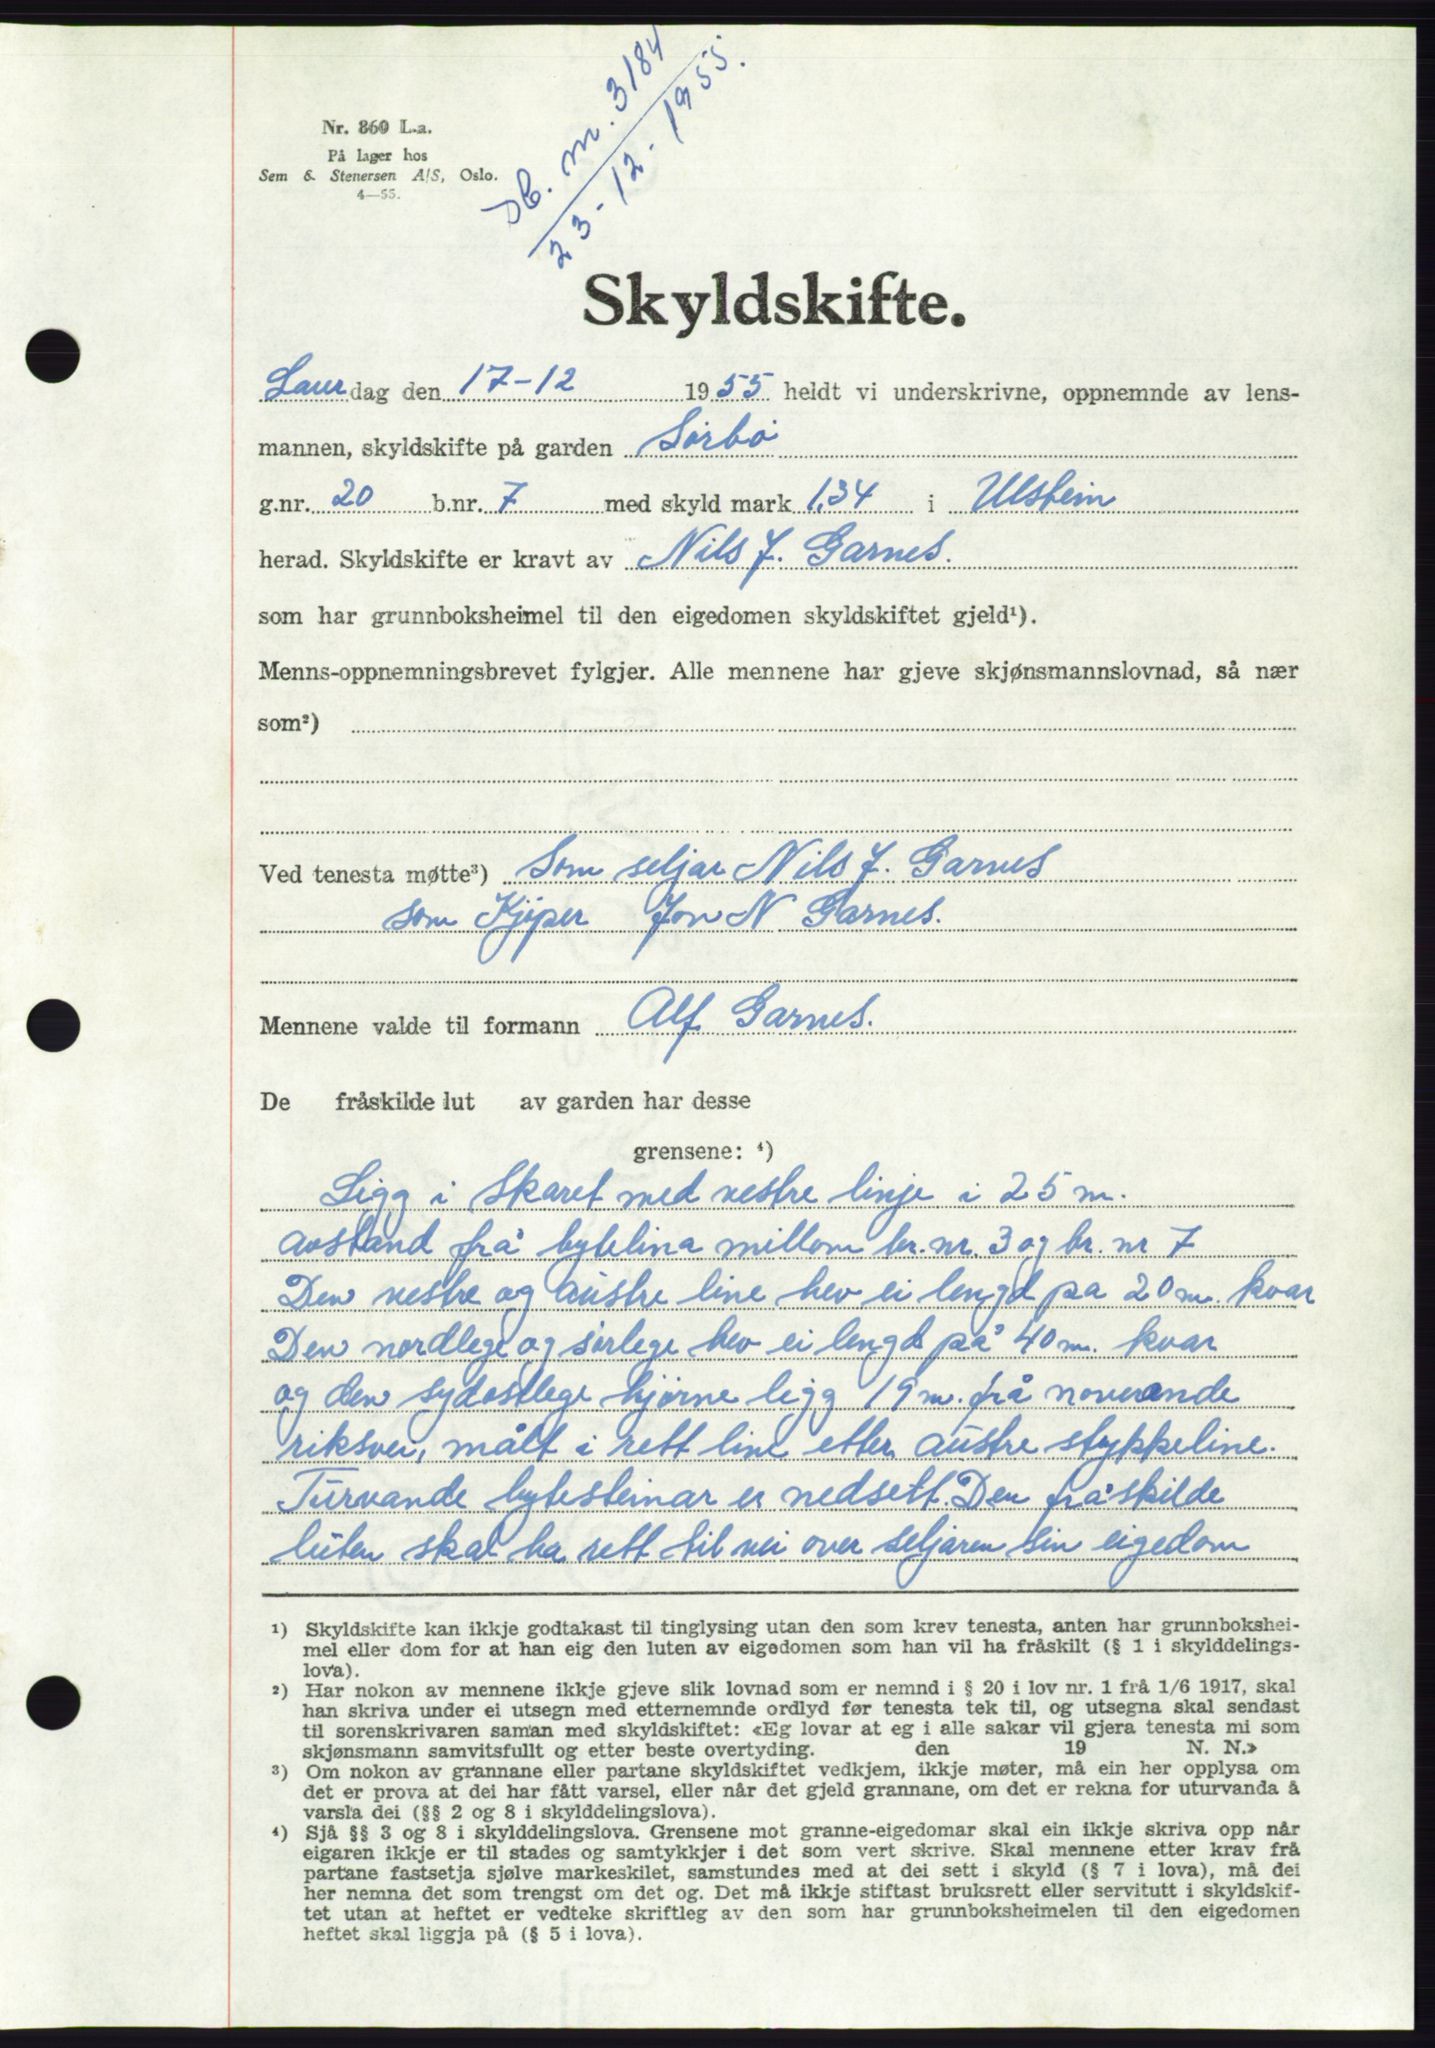 Nr. 860 L.a.
På lager hos
Sem & Stenersen A/S, Oslo.
4—55.
Jb. m. 3184
23-12-1955.
Skyldskifte.
Laurdag den 17-12 1955 heldt vi underskrivne, oppnemnde av lens-
mannen, skyldskifte på garden Sørbø
g.nr. 20 b.nr. 7 med skyld mark 1,34 i Ulstein
herad. Skyldskifte er kravt av Nils J. Garnes.
som har grunnboksheimel til den eigedomen skyldskiftet gjeld¹).
Menns-oppnemningsbrevet fylgjer. Alle mennene har gjeve skjønsmannslovnad, så nær
som²)
Ved tenesta møtte³) Som seljar Nils J. Garnes
som Kjøper Jon N Garnes.
Mennene valde til formann Alf Garnes.
De fråskilde lut av garden har desse
grensene: ⁴)
Ligg i Skaret med vestre linje i 25 m.
avstand frå bytelina millom br. nr. 3 og br. nr 7
Den vestre og austre line hev ei lengd pa 20 m. kvar
Den nordlege og sørlege hev ei lengd på 40 m. kvar
og den sydostlege hjørne ligg 19 m. frå noverande
riksvei, målt i rett line etter austre stykkeline.
Turvande bytesteinar er nedsett. Den fråskilde
luten skal ha rett til vei over seljaren sin eigedom
¹) Skyldskifte kan ikkje godtakast til tinglysing utan den som krev tenesta, anten har grunnbokshei-
mel eller dom for at han eig den luten av eigedomen som han vil ha fråskilt (§ 1 i skylddelings-
lova).
²) Har nokon av mennene ikkje gjeve slik lovnad som er nemnd i § 20 i lov nr. 1 frå 1/6 1917, skal
han skriva under ei utsegn med etternemnde ordlyd før tenesta tek til, og utsegna skal sendast
til sorenskrivaren saman med skyldskiftet: «Eg lovar at eg i alle sakar vil gjera tenesta mi som
skjønsmann samvitsfullt og etter beste overtyding. den 19 N. N.»
³) Om nokon av grannane eller partane skyldskiftet vedkjem, ikkje møter, må ein her opplysa om
det er prova at dei har fått varsel, eller når det gjeld grannane, om det er rekna for uturvanda å
varsla dei (§§ 2 og 8 i skylddelingslova).
⁴) Sjå §§ 3 og 8 i skylddelingslova. Grensene mot granne-eigedomar skal ein ikkje skriva opp når
eigaren ikkje er til stades og samtykkjer i det som vert skrive. Skal mennene etter krav frå
partane fastsetja sjølve markeskilet, samstundes med at dei sett i skyld (§ 7 i lova), må dei
her nemna det som trengst om det og. Det må ikkje stiftast bruksrett eller servitutt i skyldskif-
tet utan at heftet er vedteke skriftleg av den som har grunnboksheimelen til den eigedomen
heftet skal liggja på (§ 5 i lova).